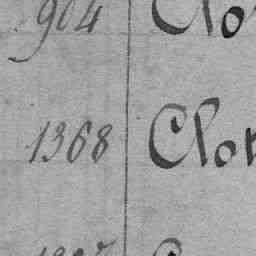 904 Clo
1368 Clot